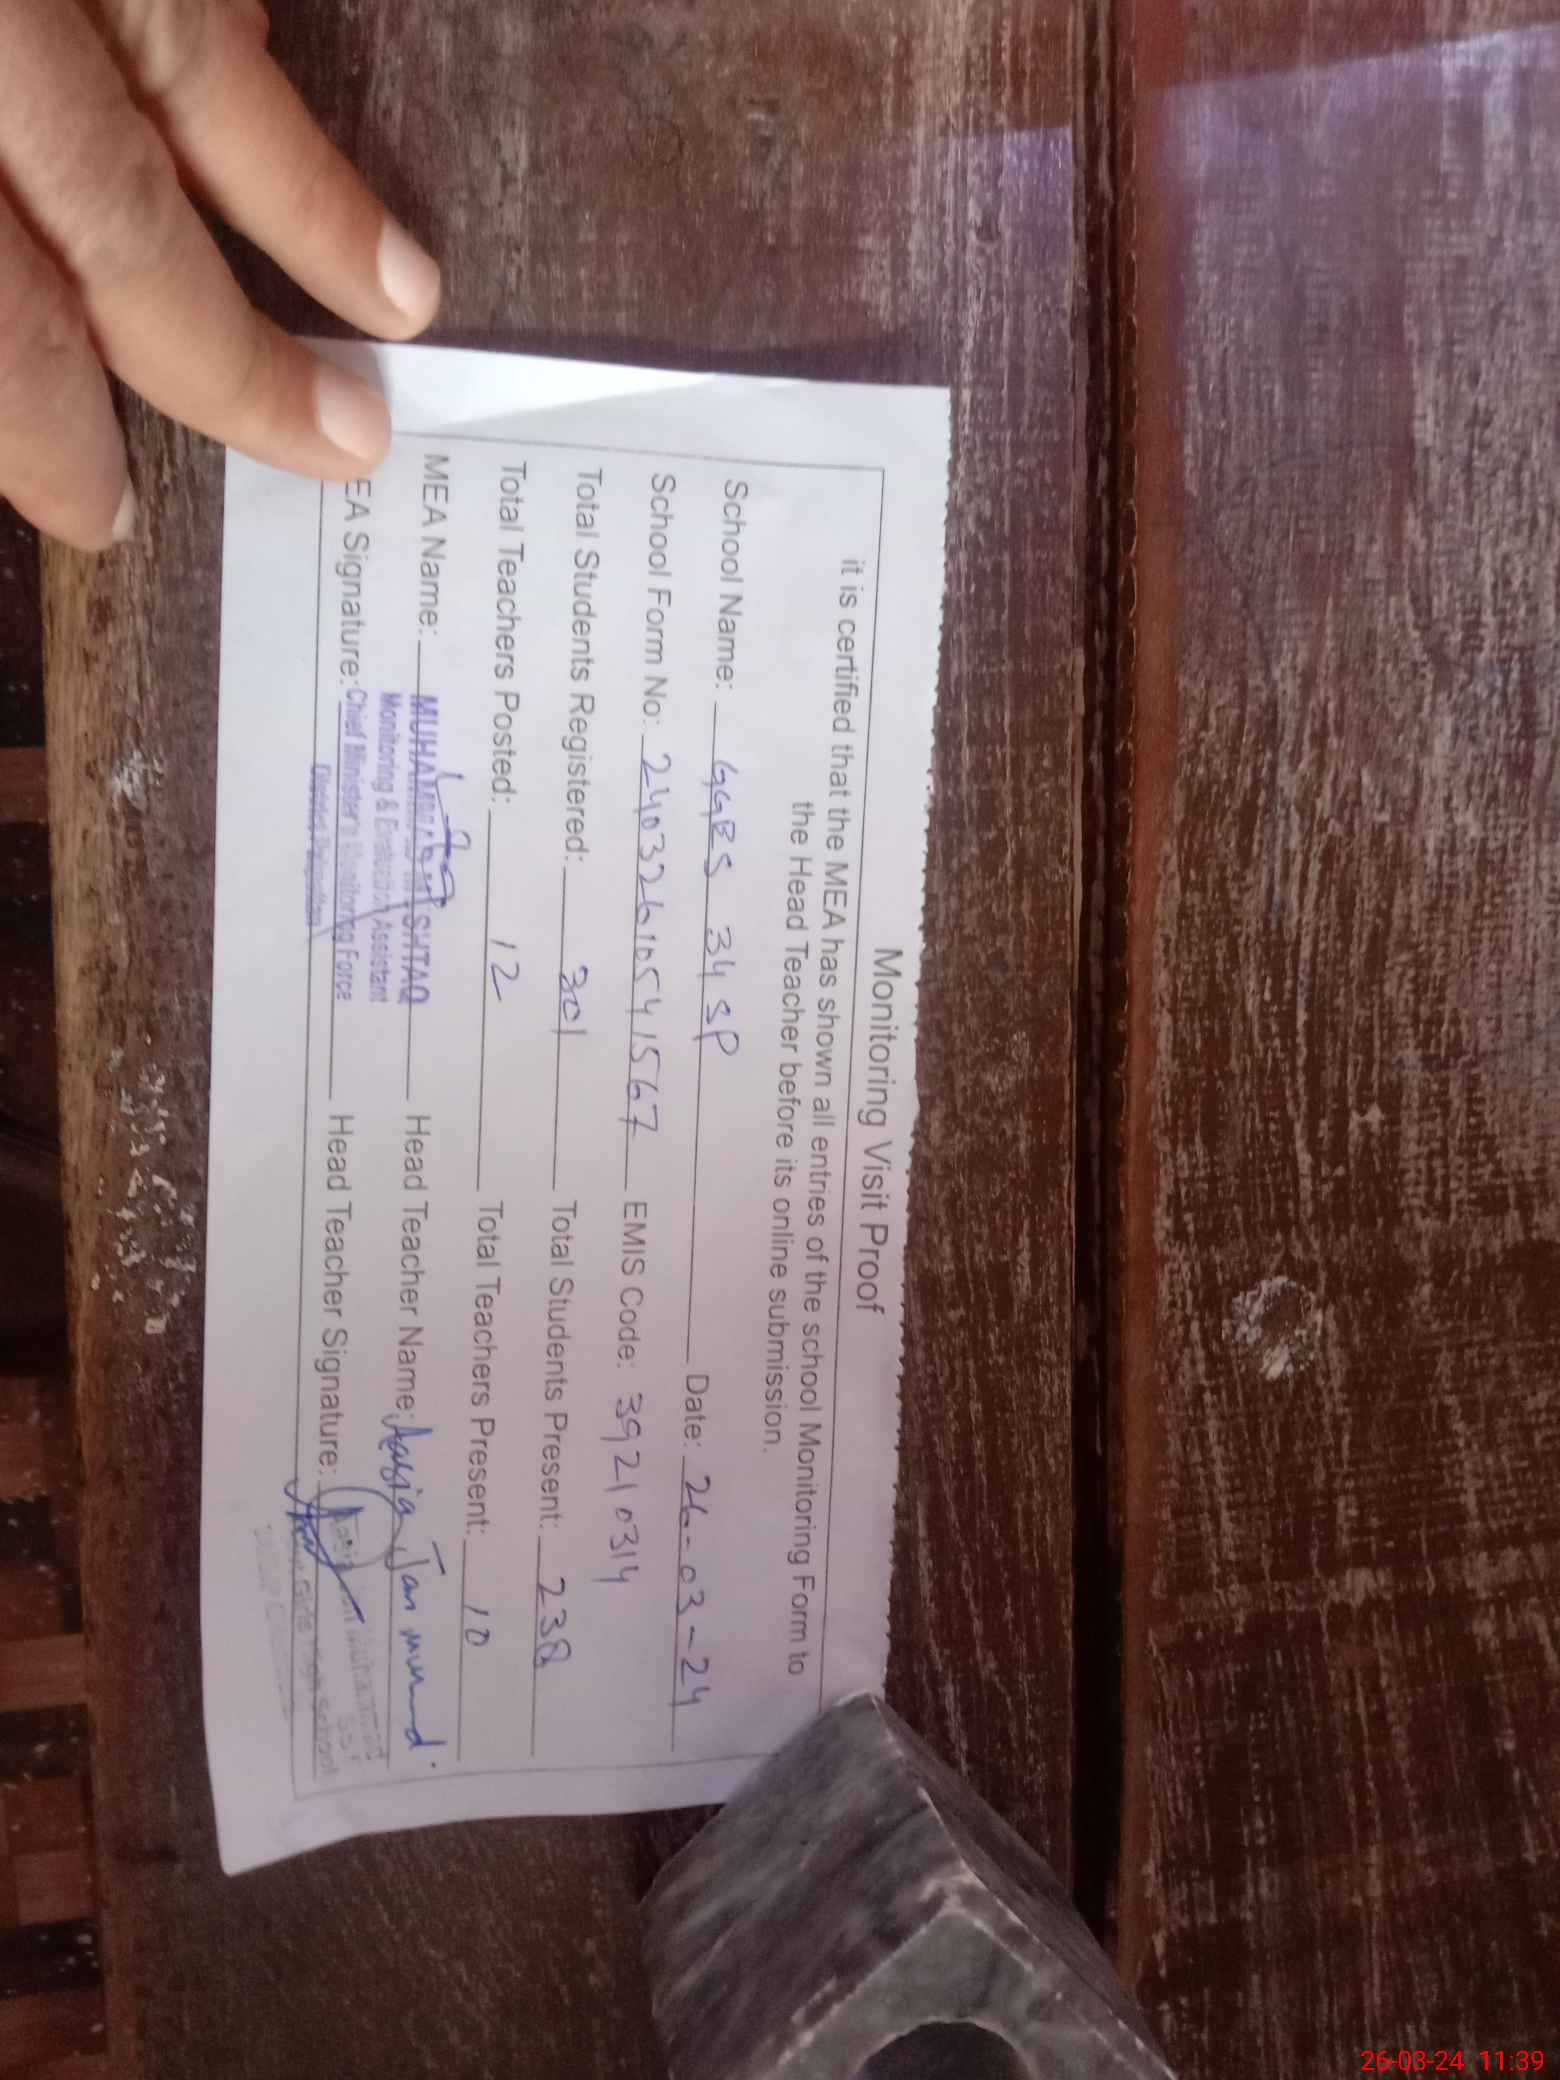 Monitoring Visit Proof
it is certified that the MEA has shown all entries of the school Monitoring Form to
the Head Teacher before its online submission.
School Name: GGES 34 SP Date: 26-03-24
School Form No: 24032610541567 EMIS Code: 39210314
Total Students Registered: 301 Total Students Present: 238
Total Teachers Posted: 12 Total Teachers Present: 10
MEA Name: MUHAMMAD MUSHTAQ Head Teacher Name: Aasia Jan
Monitoring & Evaluation Assistant
EA Signature: Chief Minister's Monitoring Force Head Teacher Signature:
District Pakpattan
Muhammad
Girls High School
26-03-24 11:39